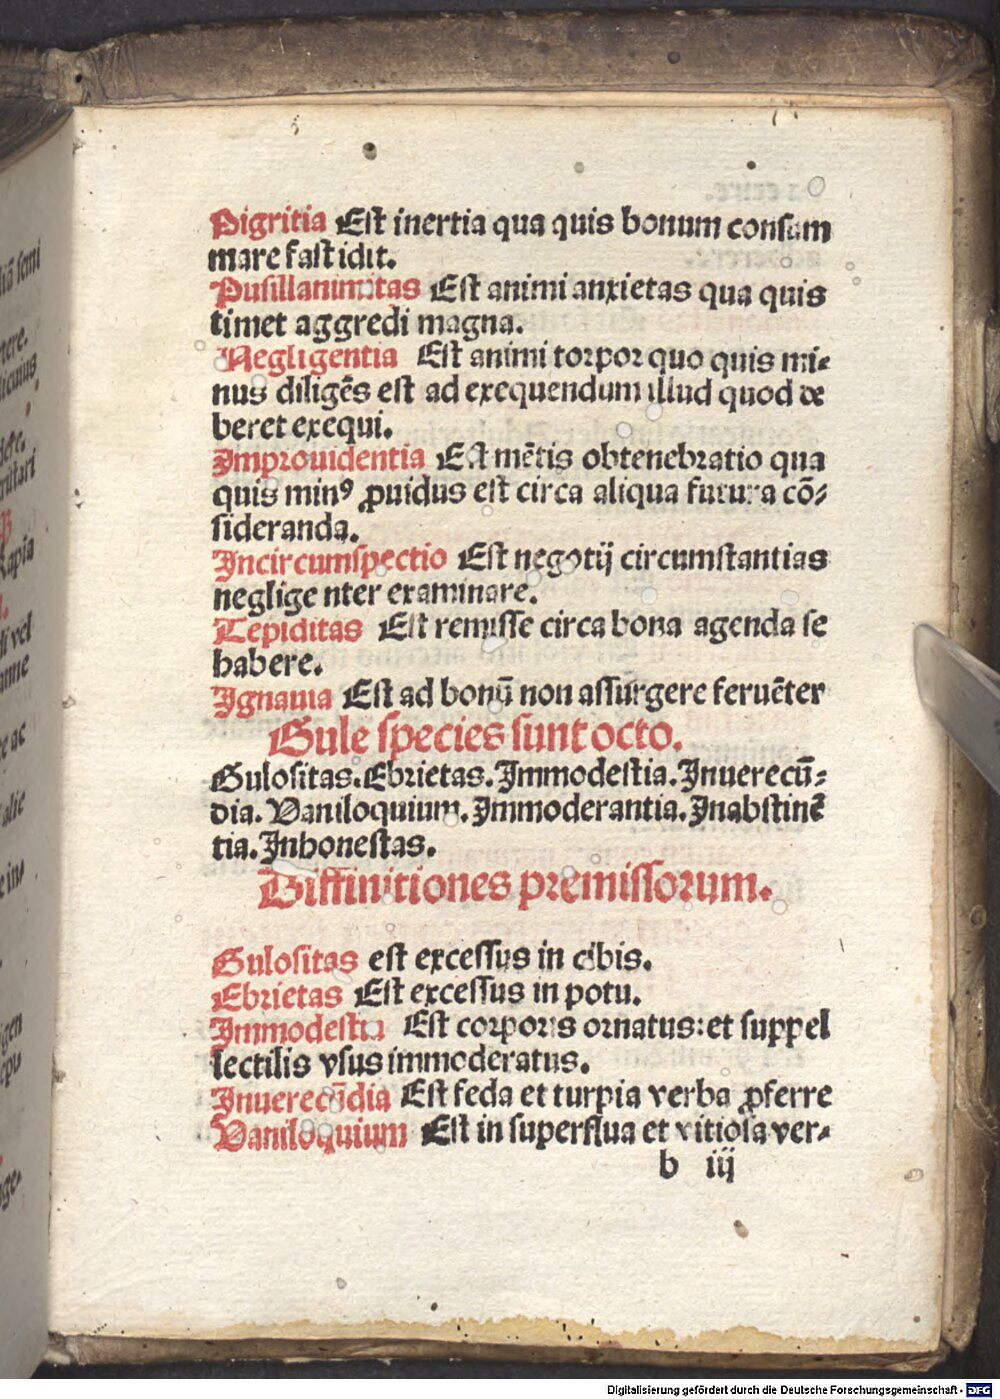 Pigritia Est inertia qua quis bonum consum
mare fastidit.
Pusillanimitas Est animi anxietas qua quis
timet aggredi magna.
Negligentia Est animi torpor quo quis mi-
nus diligẽs est ad exequendum illud quod de
beret exequi.
Improuidentia Est mẽtis obtenebratio qua
quis minꝰ ꝓuidus est circa aliqua futura cõ-
sideranda.
Incircumspectio Est negotij circumstantias
neglige nter examinare.
Tepiditas Est remisse circa bona agenda se
habere.
Ignauia Est ad bonũ non assurgere feruẽter
Gule species sunt octo.
Gulositas. Ebrietas. Immodestia. Inuerecũ-
dia. Vaniloquium. Immoderantia. Inabstinẽ
tia. Inhonestas.
Diffinitiones premissorum.
Gulositas est excessus in cibis.
Ebrietas Est excessus in potu.
Immodestia Est corporis ornatus: et suppel
lectilis vsus immoderatus.
Inuerecũdia Est feda et turpia verba ꝓferre
Vaniloquium Est in superflua et vitiosa ver-
b iij
Digitalisierung gefördert durch die Deutsche Forschungsgemeinschaft - DFG